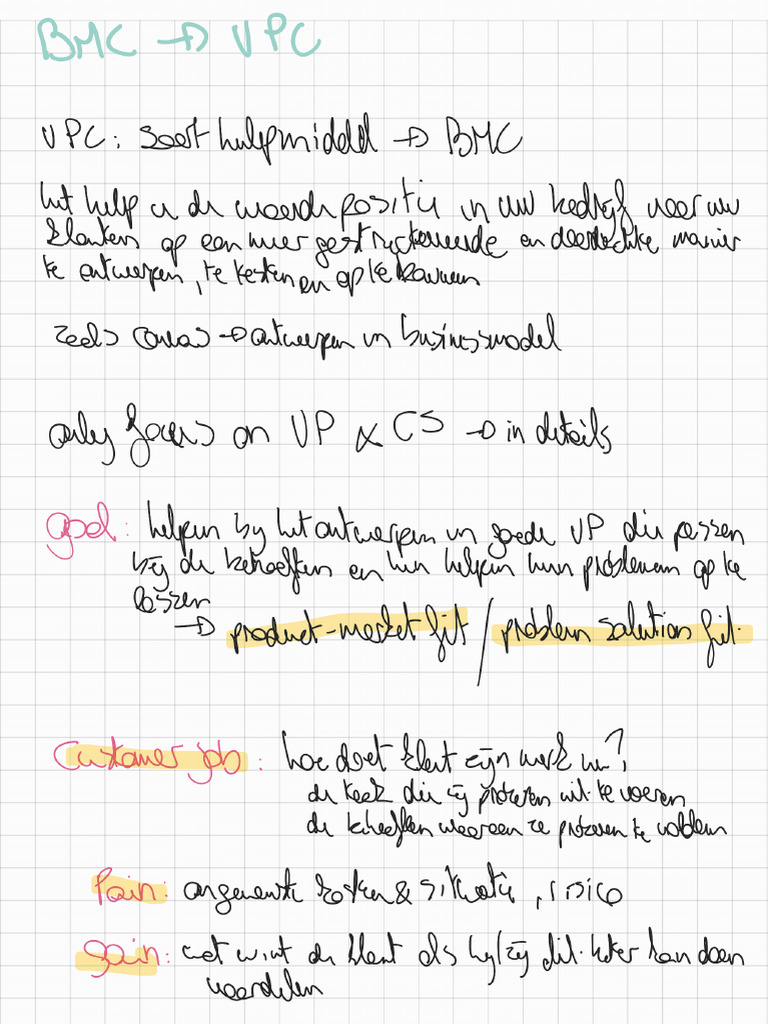 BMC → VPC
VPC: soort hulpmiddel → BMC
het help u de waardepositie in uw bedrijf voor uw
klanten op een meer gestructureerde en doordachte manier
te ontwerpen, te testen en op te bouwen
zoals canvas → ontwerpen vn businessmodel
only focus on VP & CS → in details
goal: helpen bij het ontwerpen vn goede VP die passen
bij de behoeften en hen helpen hun problemen op te
lossen
→ product-market fit / problem solution fit.
Customer job: hoe doet klant zijn werk nu?
de taak die zij proberen uit te voeren
de behoeften waaraan ze proberen te voldoen
Pain: ongewenste kosten & situatie, risico
gain: wat wint de klant als hij/zij dit beter kan doen
voordelen